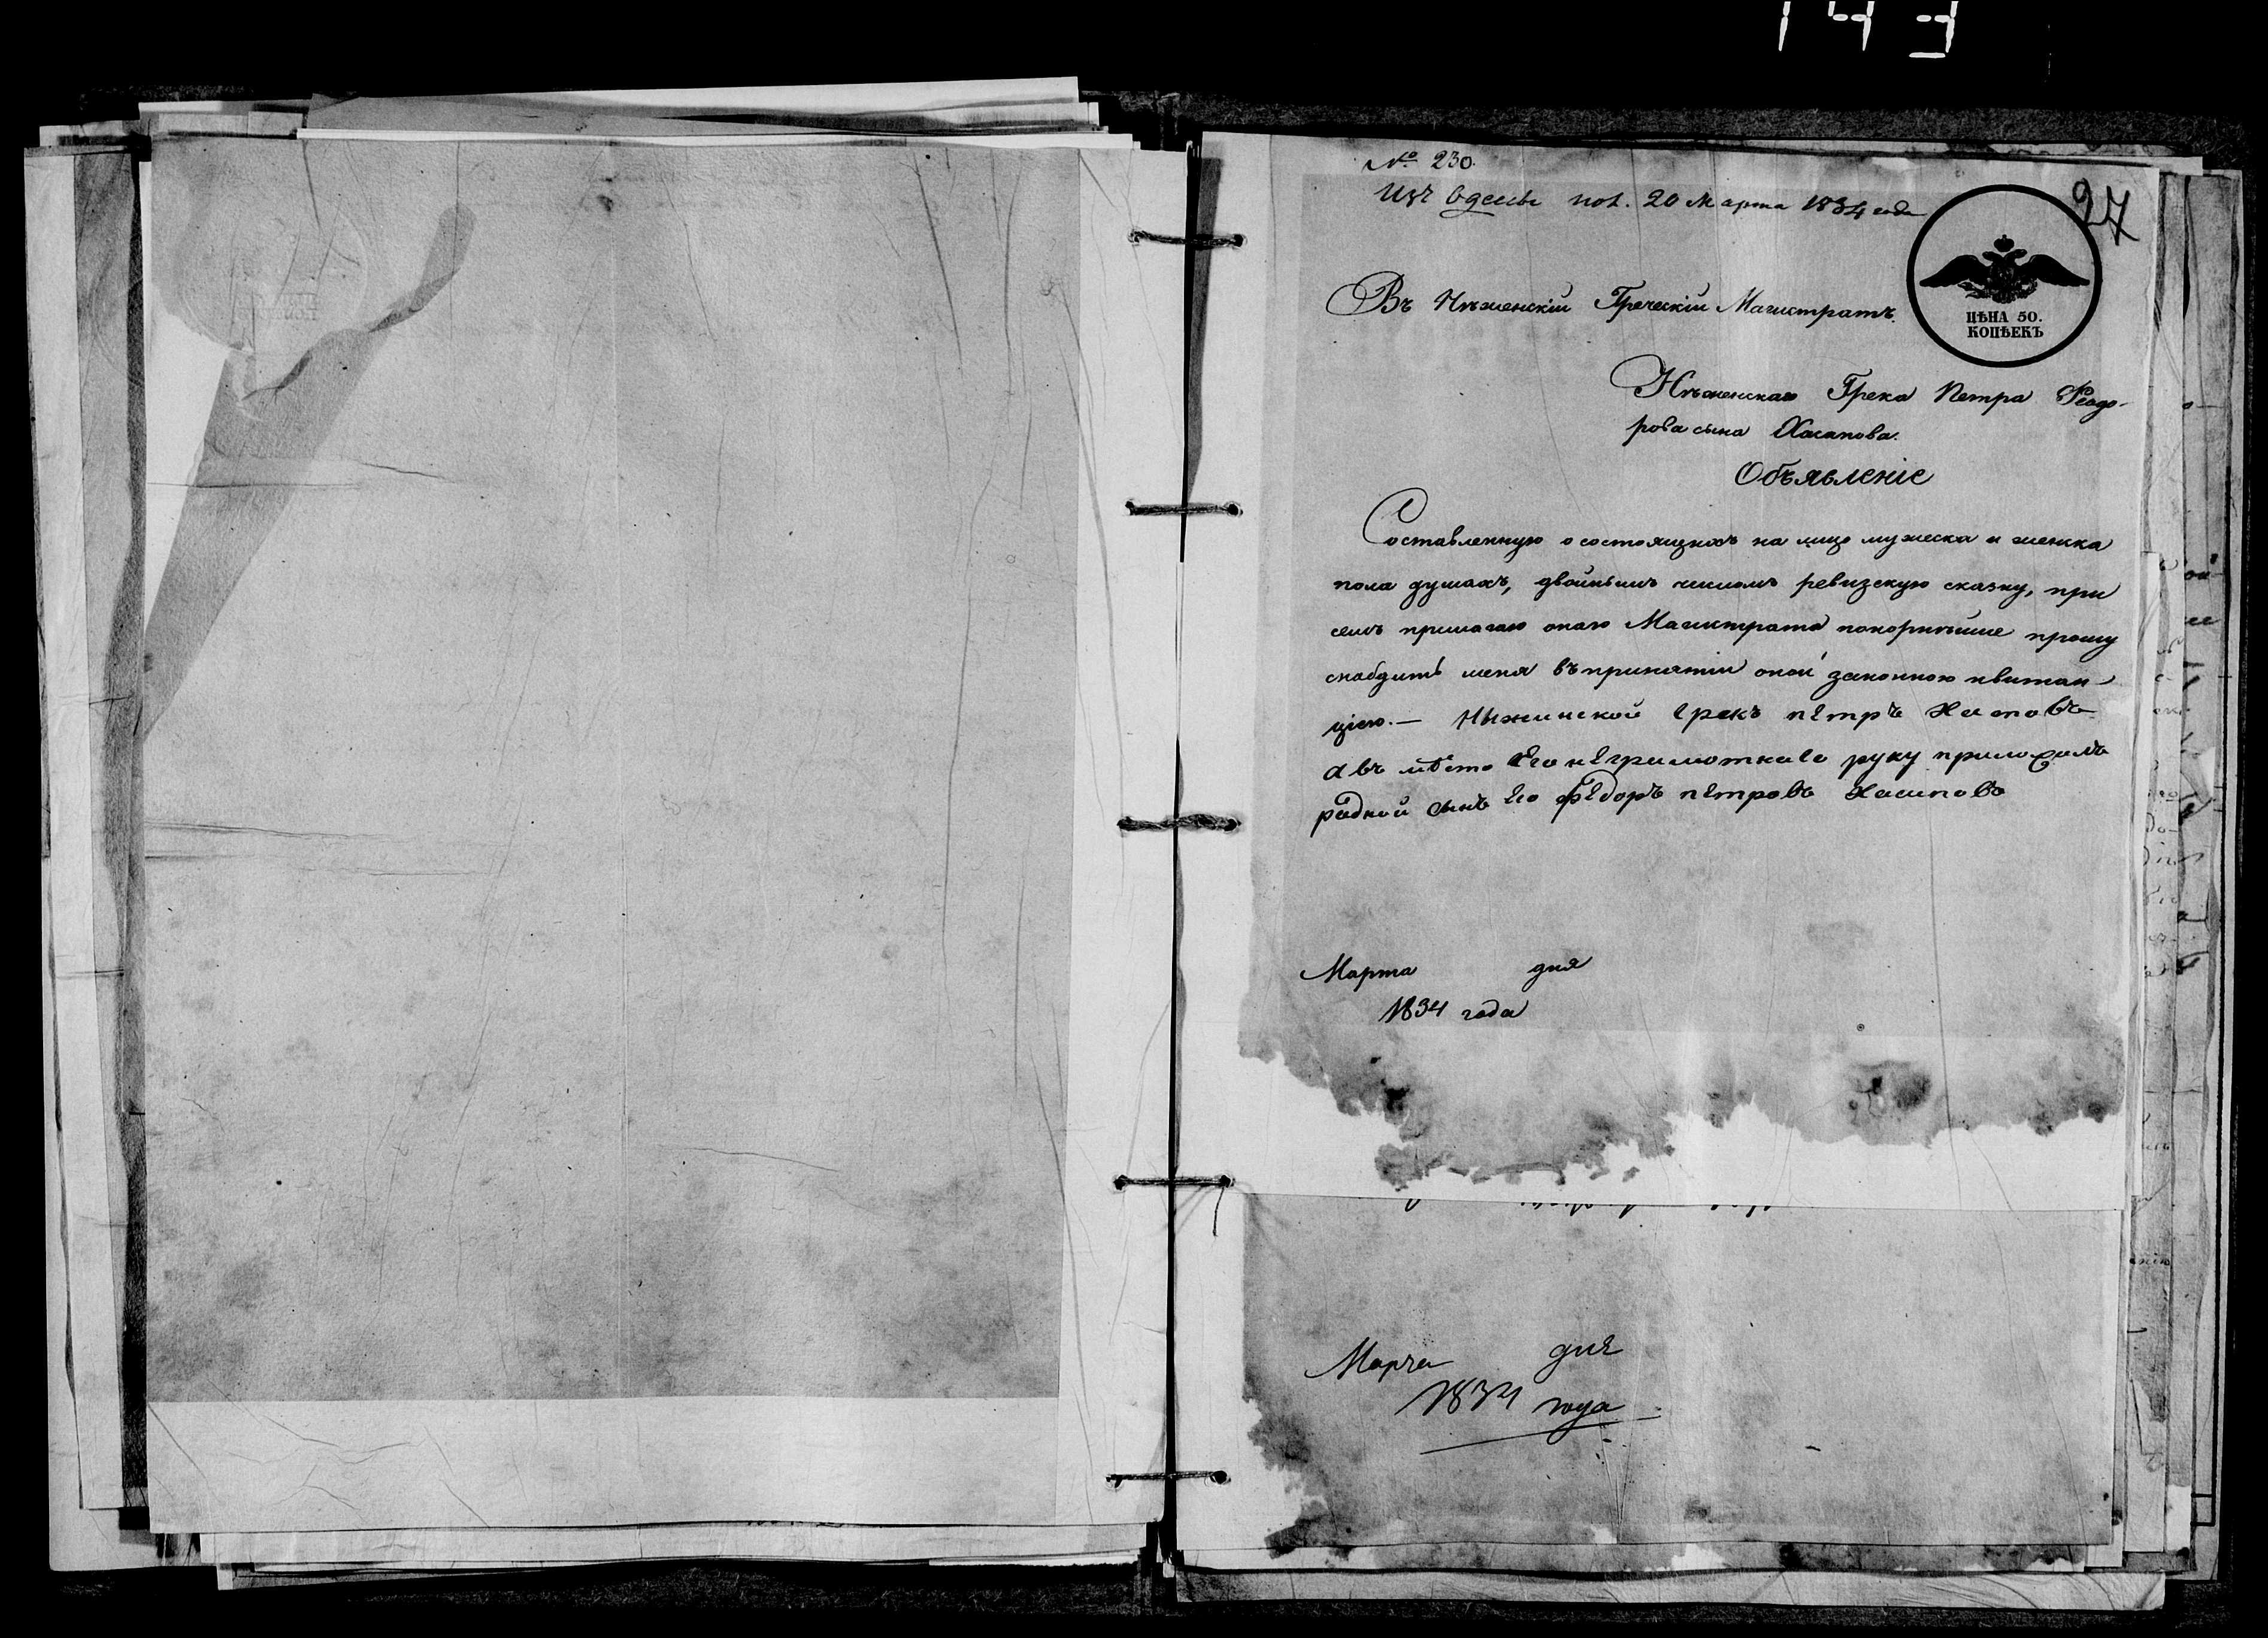 143
№ 230.
Изъ Одессы пол. 20 Марта 1834 года
27
ЦѢНА 50.
КОПѢЕКЪ
Въ Нѣженскій Греческій Магистратъ.
Нѣженскаго Грека Петра Феодо-
рова сына Хасапова.
Объявленіе
Составленную о состоящихъ на лицо мужеска и женска
пола душахъ, двойнымъ числомъ ревизскую сказку, при
семъ прилагаю онаго Магистрата покорнѣйше прошу
снабдить меня въ принятіи оной законною квитан-
цією.— Ныжинской грекъ петръ Хасаповъ
а въ мѣсто его неграмотнаго руку приложилъ
родной сынъ его федоръ петровъ Хасаповъ
Марта дня
1834 года
Марта дня
1834 года